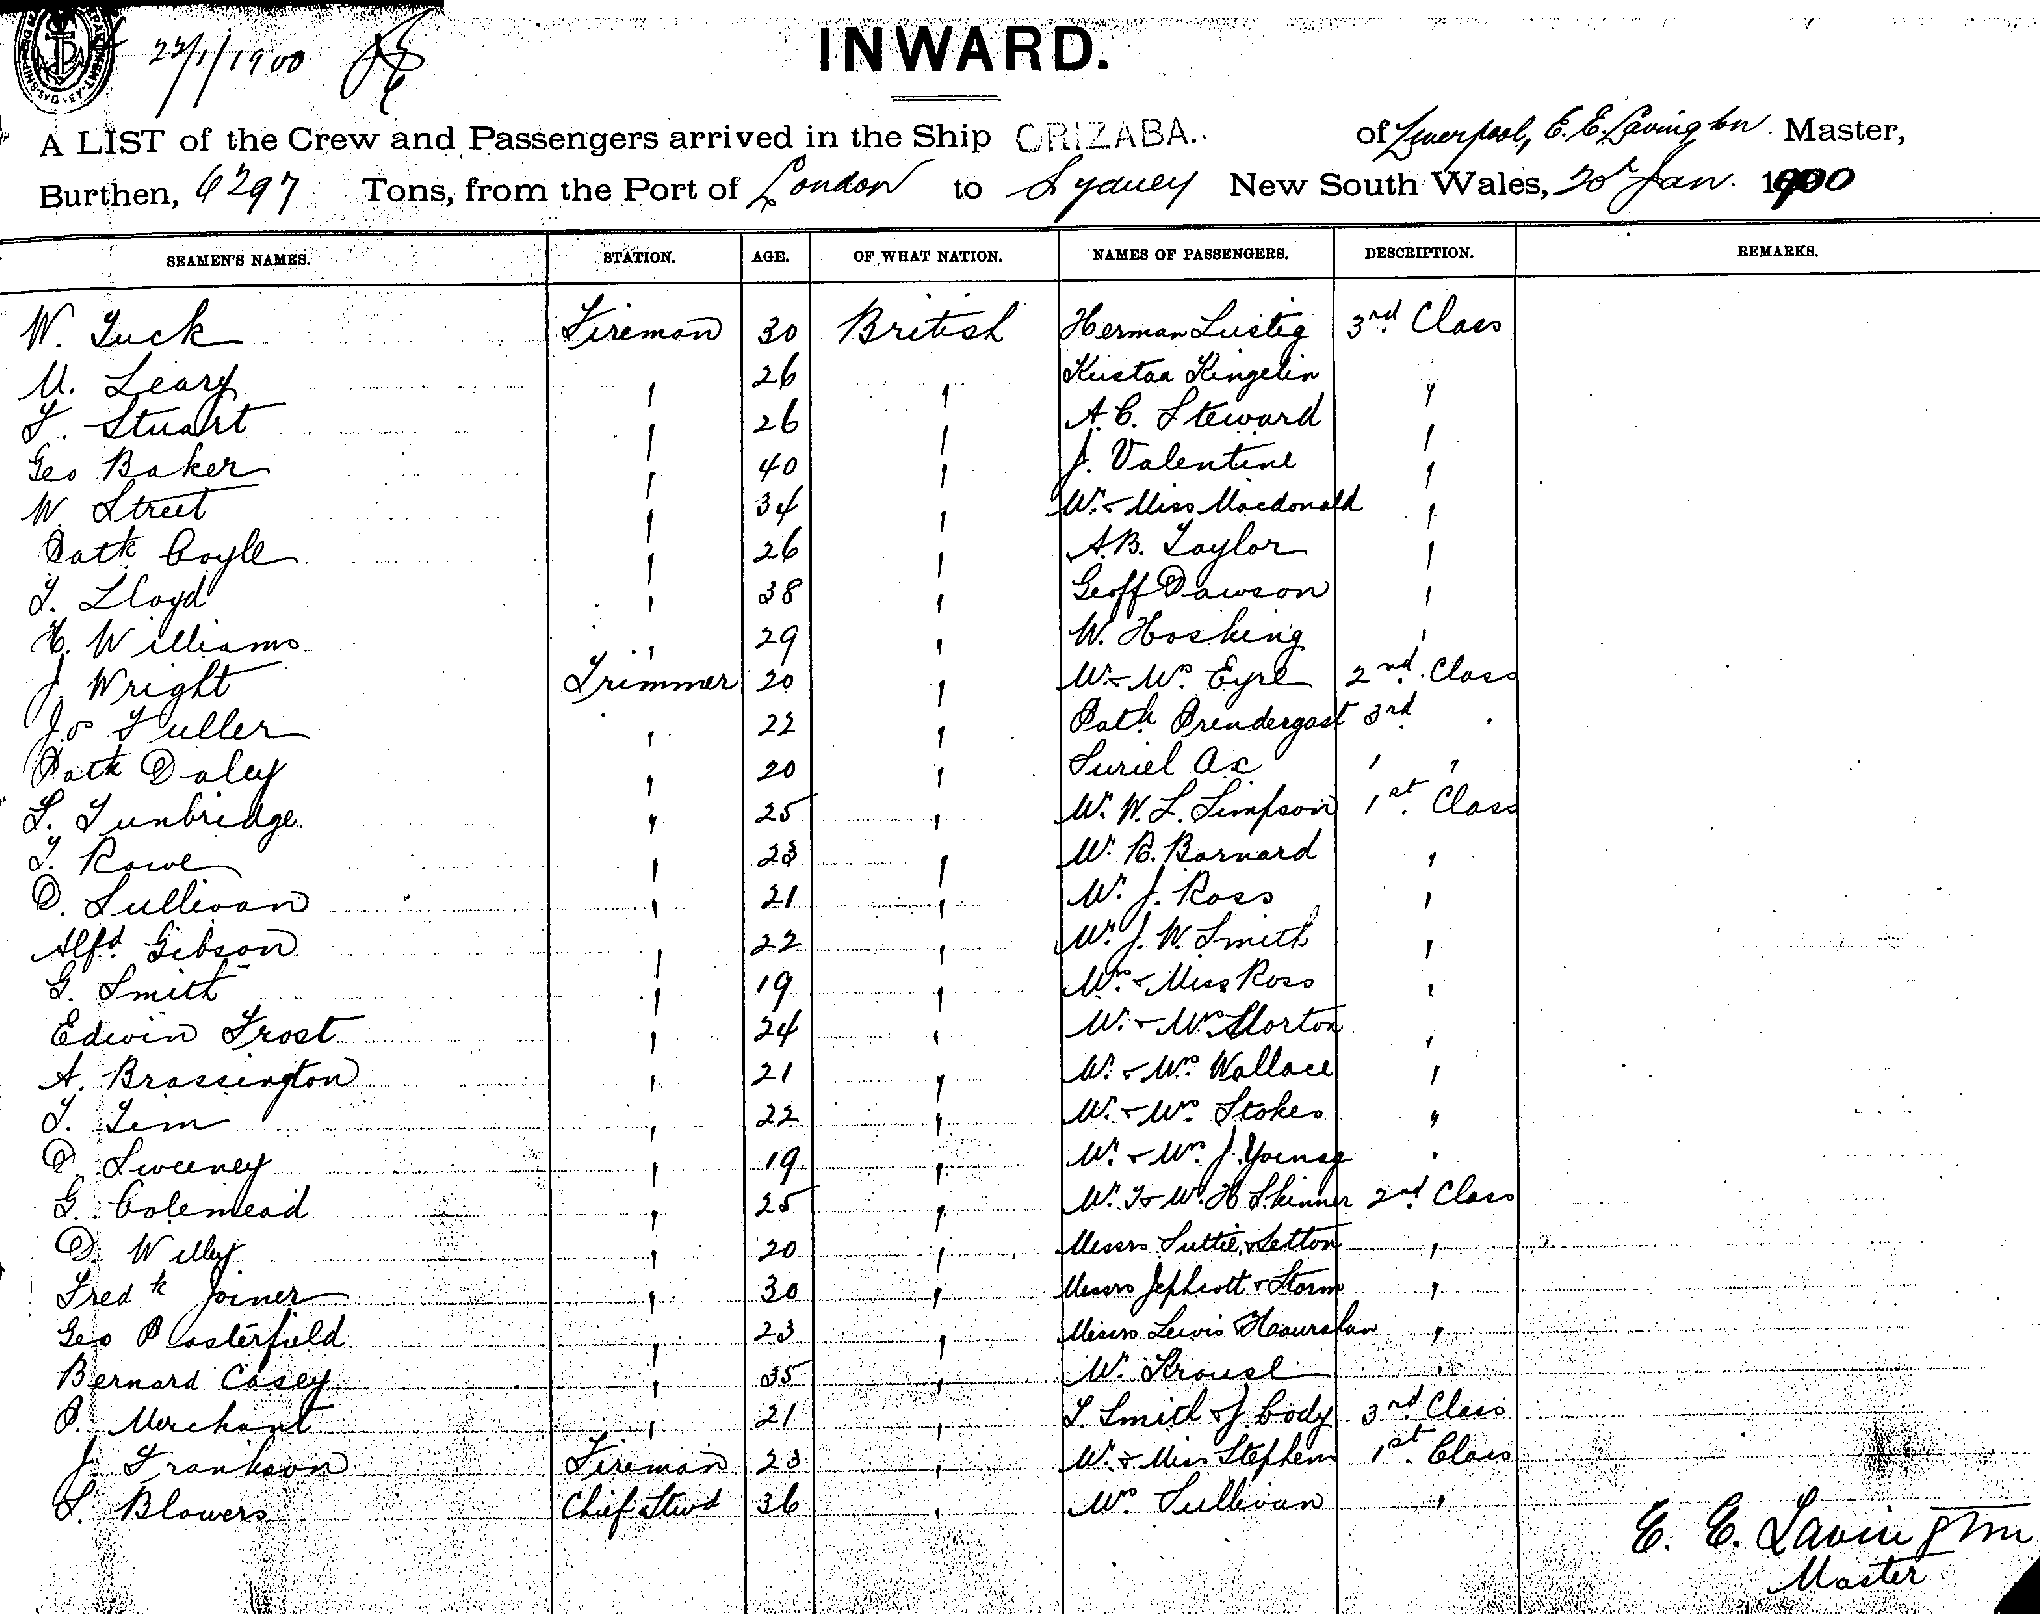 22/1/1900
INWARD.
A LIST of the Crew and Passengers arrived in the Ship ORIZABA. of Liverpool, E. E. Lavington Master,
Burthen, 6297 Tons, from the Port of London to Sydney New South Wales, 20th Jan. 1900
SEAMEN'S NAMES. STATION. AGE. OF WHAT NATION. NAMES OF PASSENGERS. DESCRIPTION. REMARKS.
W. Tuck Fireman 30 British Herman Lustig 3rd Class
M. Leary " 26 " Kustaa Kingelin "
F. Stuart " 26 " A. C. Steward "
Geo Baker " 40 " J. Valentine "
W. Street " 34 " Mr. & Miss Macdonald "
Patk Coyle " 26 " A. B. Taylor "
T. Lloyd " 38 " Geoff Dawson "
H. Williams " 29 " W. Hosking "
J. Wright Trimmer 20 " Mr. & Mrs. Eyre 2nd Class
Jos Fuller " 22 " Patk Prendergast 3rd "
Patk Daley " 20 " " "
S. Tunbridge " 25 " Mr. W. L. Simpson 1st Class
T. Rowe " 23 " Mr. R. Barnard "
D. Sullivan " 21 " Mr. J. Ross "
Alfd Gibson " 22 " Mr. J. W. Smith "
G. Smith " 19 " Mrs. & Miss Ross "
Edwin Frost " 24 " Mr. & Mrs. "
A. Brassington " 21 " Mr. & Mrs. Wallace "
T. Tim " 22 " Mr. & Mrs. Stokes "
D. Sweeney " 19 " Mr. & Mrs. J. Young "
G. Colemead " 25 " Mr. T & Mr. H Skinner 2nd Class
D. Willy " 20 " Messrs Suttie & Setton "
Fredk Joiner " 30 " Messrs Jephcott & Storm "
Geo Posterfield " 23 " Messrs Lewis "
Bernard Casey " 35 " Mr. Krouse "
P. Merchant " 21 " T. Smith & J Cody 3rd Class
J. Frankson Fireman 23 " Mr. & Miss Stephens 1st Class
S. Blowers Chief Stwd 36 " Mrs. Sullivan "
E. E. Lavington
Master